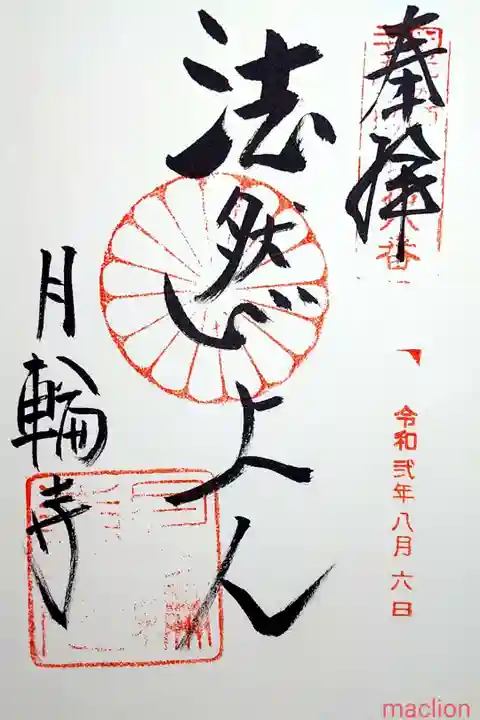 奉拝
令和弐年八月六日
法然上人
月輪寺
maclion